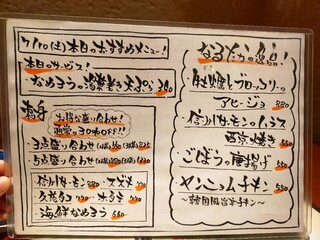 7/10(土)本日のおすすめメニュー!
本日のサービス!
なめろうの海苔巻き天ぷら 380
お刺身
お得な盛り合わせ!
通常の30%OFF!!
3点盛り合わせ
5点盛り合わせ
信州サーモン 580 スズキ
久慈ダコ
海鮮なめろう 550
なるたかの逸品!
牡蠣とブロッコリーの
アヒージョ 880
信州サーモンのハラス
西京焼き 550
ごぼうの唐揚げ 550
ヤンニョムチキン 550
~韓国風旨辛チキン~